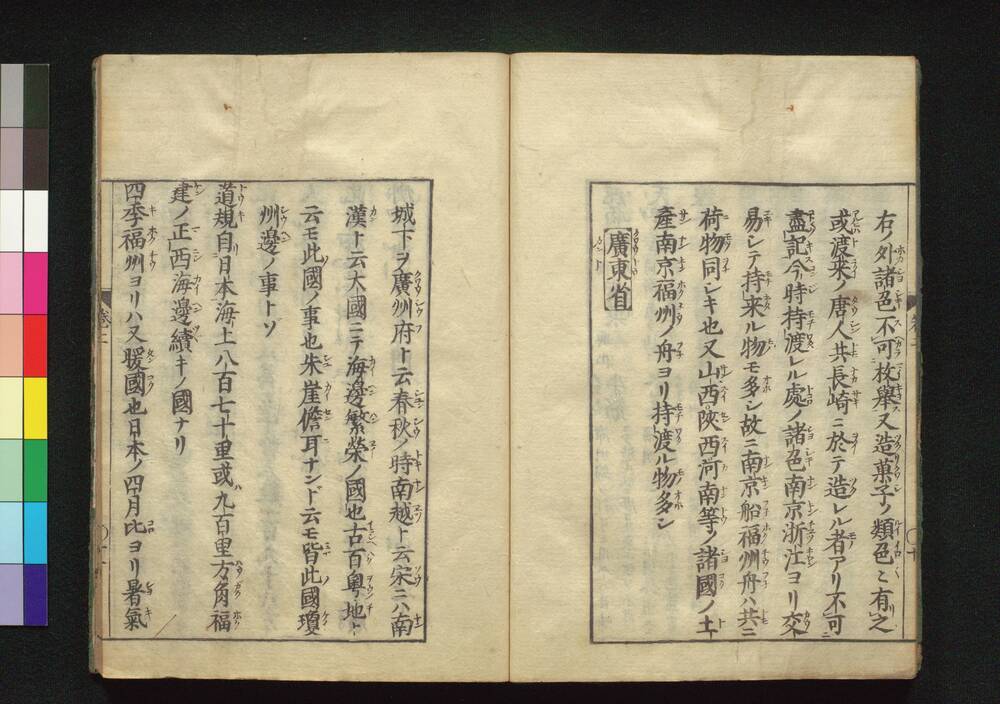 右ノ外諸色不可枚擧又造菓子ノ類色〻有之
或渡来ノ唐人共長崎ニ於テ造レル者アリ不可
盡記今時持渡レル處ノ諸色南京浙江ヨリ交
易シテ持来ル物モ多シ故ニ南京船福州舟ハ共ニ
荷物同シキ也又山西陝西河南等ノ諸國ノ土
産南京福州ノ舟ヨリ持渡ル物多シ
廣東省
城下ヲ廣州府ト云春秋ノ時南越ト云宋ニハ南
漢ト云大國ニテ海邊繁榮ノ國也古百粤地ト
云モ此國ノ事也朱崖儋耳ナンド云モ皆此國瓊
州邊ノ事トソ
道規自リ日本海上八百七十里或ハ九百里方角福
建ノ正西海邊續キノ國ナリ
四季福州ヨリハ又暖國也日本ノ四月比ヨリ暑氣